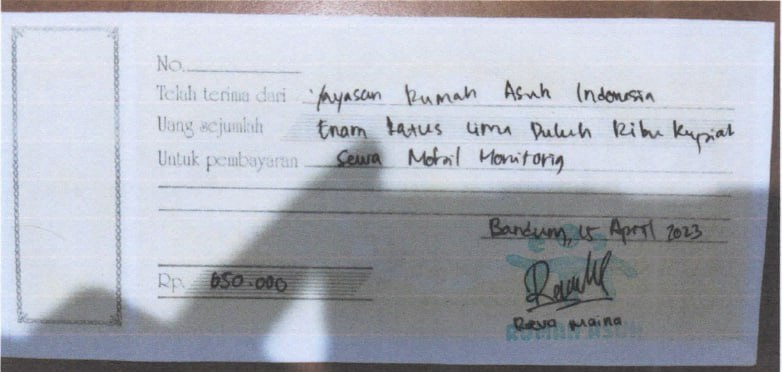 No.
Telah terima dari Yayasan Rumah Asuh Indonesia
Uang sejumlah Enam Ratus Lima Puluh Ribu Rupiah
Untuk pembayaran Sewa Mobil Monitoring
Bandung, 15 April 2023
Rp. 650.000
Maina
RUMAH ASUH